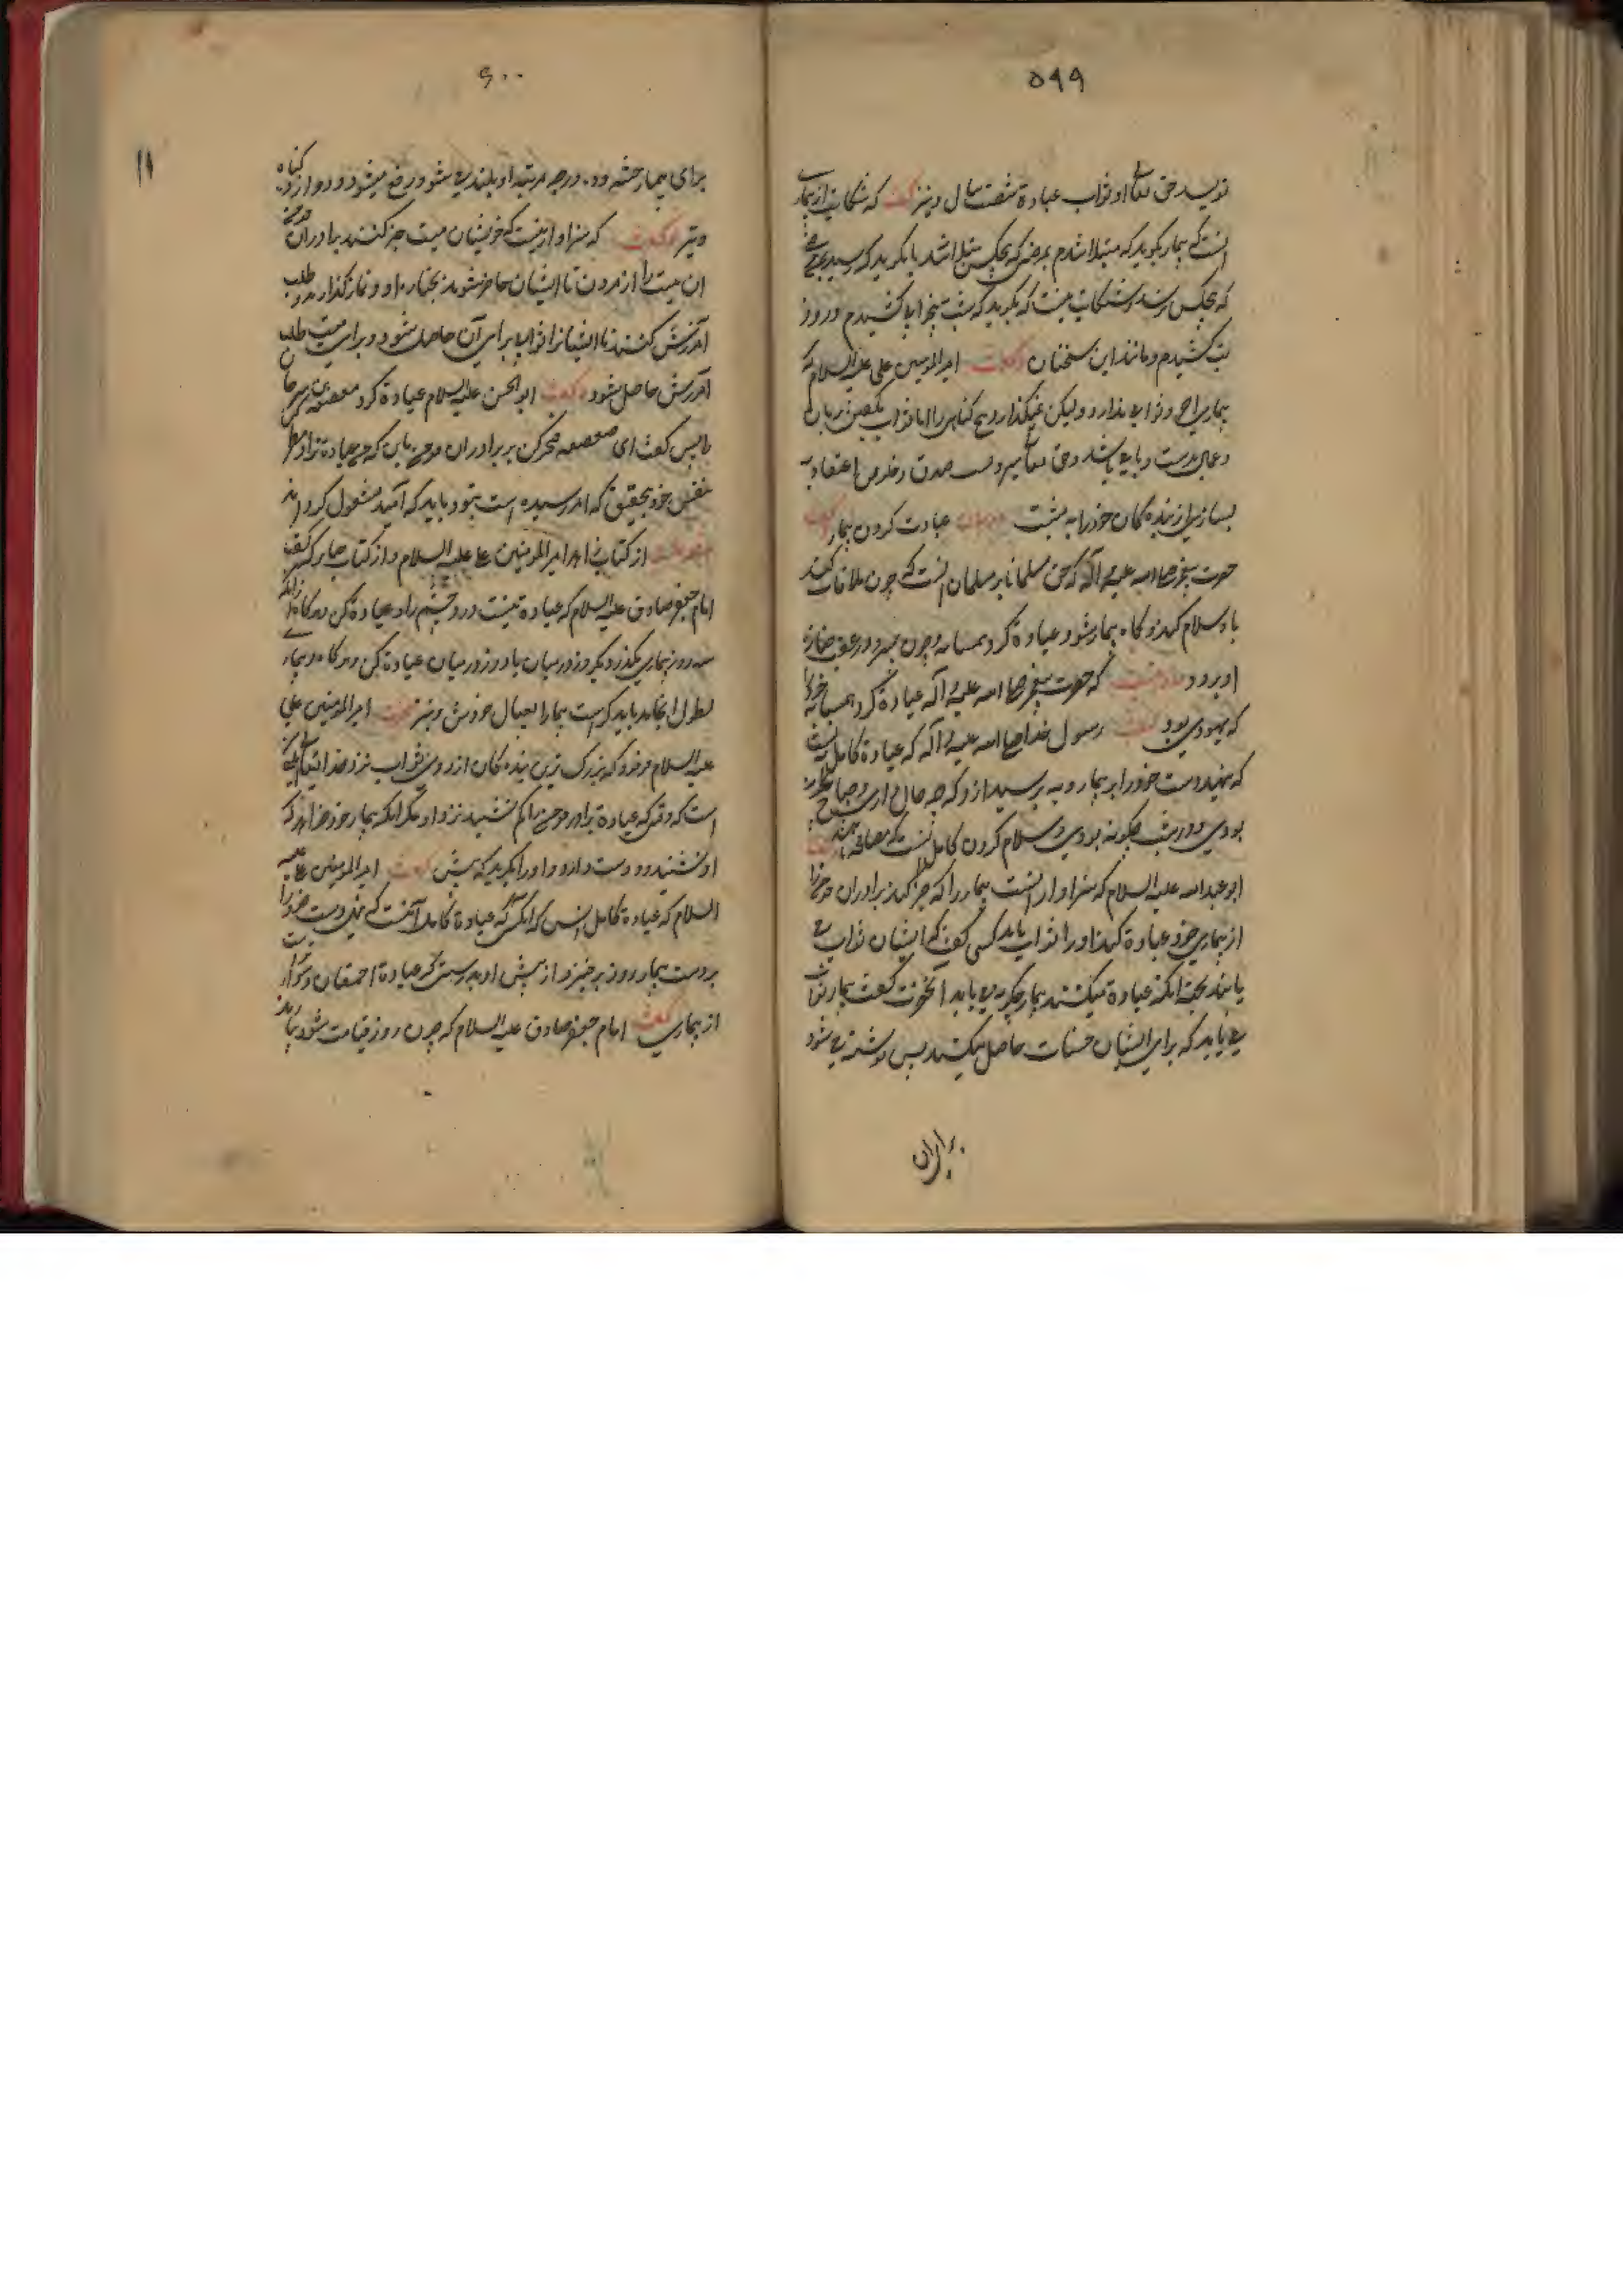 ۵۹۹
نویسد حق تعالی او ثواب عبادة شصت سال و نیز گفت که شکایت از بیماری
آنست که بیمار بگوید که مبتلا شدم بمرضی که هیچکس مبتلا نشد یا بگوید که رسید بمن
که بهیچکس نرسد و شکایت نیست که بگوید که شب بیخوابی کشیدم و روز
تب کشیدم و مانند این سخنان و گفت امیرالمومنین علی علیه السلام که
بیماری اجر و ثوابی ندارد و لیکن نمیگذارد هیچ گناهی را اما ثواب بگفتن زبان
و عمل بدست و پا می باشد و حق تعالی بسبب صدق و خلوص اعتقاد
بسیاری از بنده کان خود را به بهشت عیادت کردن بیمار گفت
حضرت پیغمبر صلی الله علیه و آله که حق مسلمان بر مسلمان آنست که چون ملاقات کند
باو سلام کند و گاه بیمار شود عیادة کرد و چون بمیرد در عقب جنازه
او برود که حضرت پیغمبر صلی الله علیه و آله عیادة کرد همسایه خود را
که یهودی بود گفت رسول خدا صلی الله علیه و آله که عیادة کامل آنست
که بنهید دست خود را بر بیمار و به پرسید از او که چه حال داری و صباح چطور
بودی و در شب چگونه بودی و سلام کردن کامل آنست که مصافحه کنند گفت
ابو عبدالله علیه السلام که سزاوار آنست بیمار را که خبر کند برادران مومن را
از بیماری خود عیادة کنند او را ثواب یابد کسی گفت که ایشان ثواب می
یابند بجهة آنکه عیادة میکنند بیمار چگونه می یابد آنحضرت گفت بیمار ثواب
می یابد که برای ایشان حسنات حاصل میکند پس نوشته می شود
برای آن
۶۰۰
۱۱
برای بیمار حسنه و ده درجه مرتبه او بلند می شود و رفع میشود و دوازده گناه
و نیز گفت که سزاوار نیست که خویشان میت خبر کنند برادران مومن
آن میت را از مردن تا ایشان حاضر شوند بجنازه او و نماز گذارند و طلب
آمرزش کنند تا ایشانرا ثواب برای آن حاصل شود و برای میت طلب
آمرزش حاصل شود و گفت ابوالحسن علیه السلام عیادة کرد صعصعة بن صوحان
را پس گفت ای صعصعه فخر مکن بر برادران مومن باین که من عیادة ترا و نظر
بنفس خود بتحقیق که امر رسیده است بتو و باید که امید مشغول نکرداند
منقولست از کتاب امیرالمومنین علی علیه السلام و از کتاب
امام جعفر صادق علیه السلام که عیادة نیست در درد چشم راد عیادة مکن و هرگاه
سه روز بیماری بگذرد یکروز در میان یا دو روز در میان عیادة کن و هرگاه بیماری
بطول انجامد باید گذاشت بیمار را بعیال خودش و نیز گفت امیرالمومنین علی
علیه السلام فرمود که بزرگ ترین بنده کان از روی ثواب نزد خدا
است که وقتی که عیادة برادر مومن را کم نشیند نزد او مگر آنکه بیمار خود خواهد که
او نشیند و دوست دارد و او را بگوید که بنشین گفت امیرالمومنین علیه
السلام که عیادة کامل آنست که عیادة کامله آنست که بنهید دست خود را
بر دست بیمار و زود برخیزد از پیش او بدرستی که عیادة احمقان دشوارتر است
از بیماری گفت امام جعفر صادق علیه السلام که چون روز قیامت شود